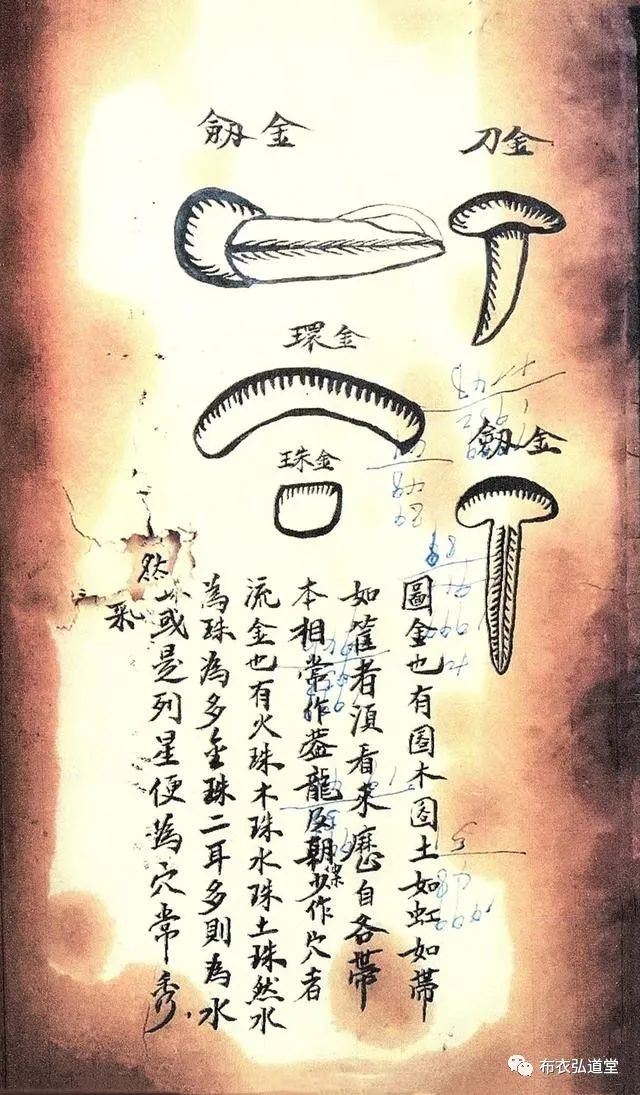 金刀
金劔
金環
金劔
金珠
圖金也有圓木圓土如虹如帶
如者須看來歷自各帶
本相常作龍朝少作穴者
流金也有火珠木珠水珠土珠然水
為珠為多金珠二耳多則為水
珠或是列星便為穴常秀
然
采
布衣弘道堂